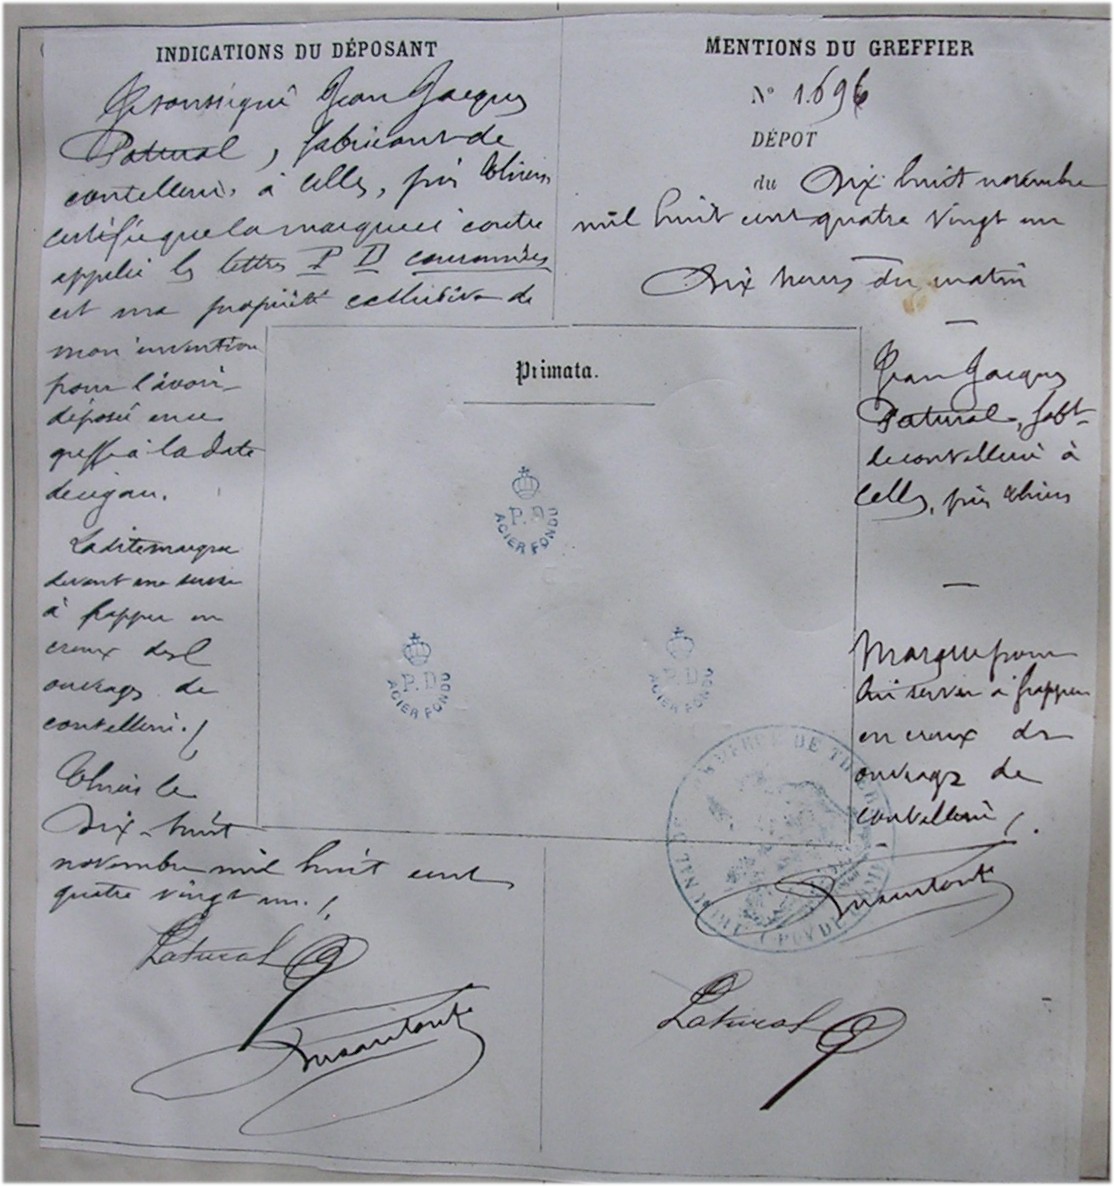 INDICATIONS DU DÉPOSANT
Je soussigné Jean Jacques
Patural, fabricant de
coutellerie, à Celles, près Thiers
certifie que la marque ci contre
appelée les lettres P D couronnées
est ma propriété exclusive de
mon invention
pour l'avoir
déposée en ce
greffe à la date
de ce jour.
Ladite marque
devant me servir
à frapper en
creux des
ouvrages de
coutellerie.
Thiers le
Dix-huit
novembre mil huit cent
quatre vingt un.
Patural
MENTIONS DU GREFFIER
N° 1.696
DÉPOT
du Dix huit novembre
mil huit cent quatre vingt un
Dix heures du matin
Primata.
P. D
ACIER FONDU
P. D
ACIER FONDU
P. D
ACIER FONDU
Jean Jacques
Patural, fabt
de coutellerie à
Celles, près Thiers
Marque pour
lui servir à frapper
en creux des
ouvrages de
coutellerie
Patural